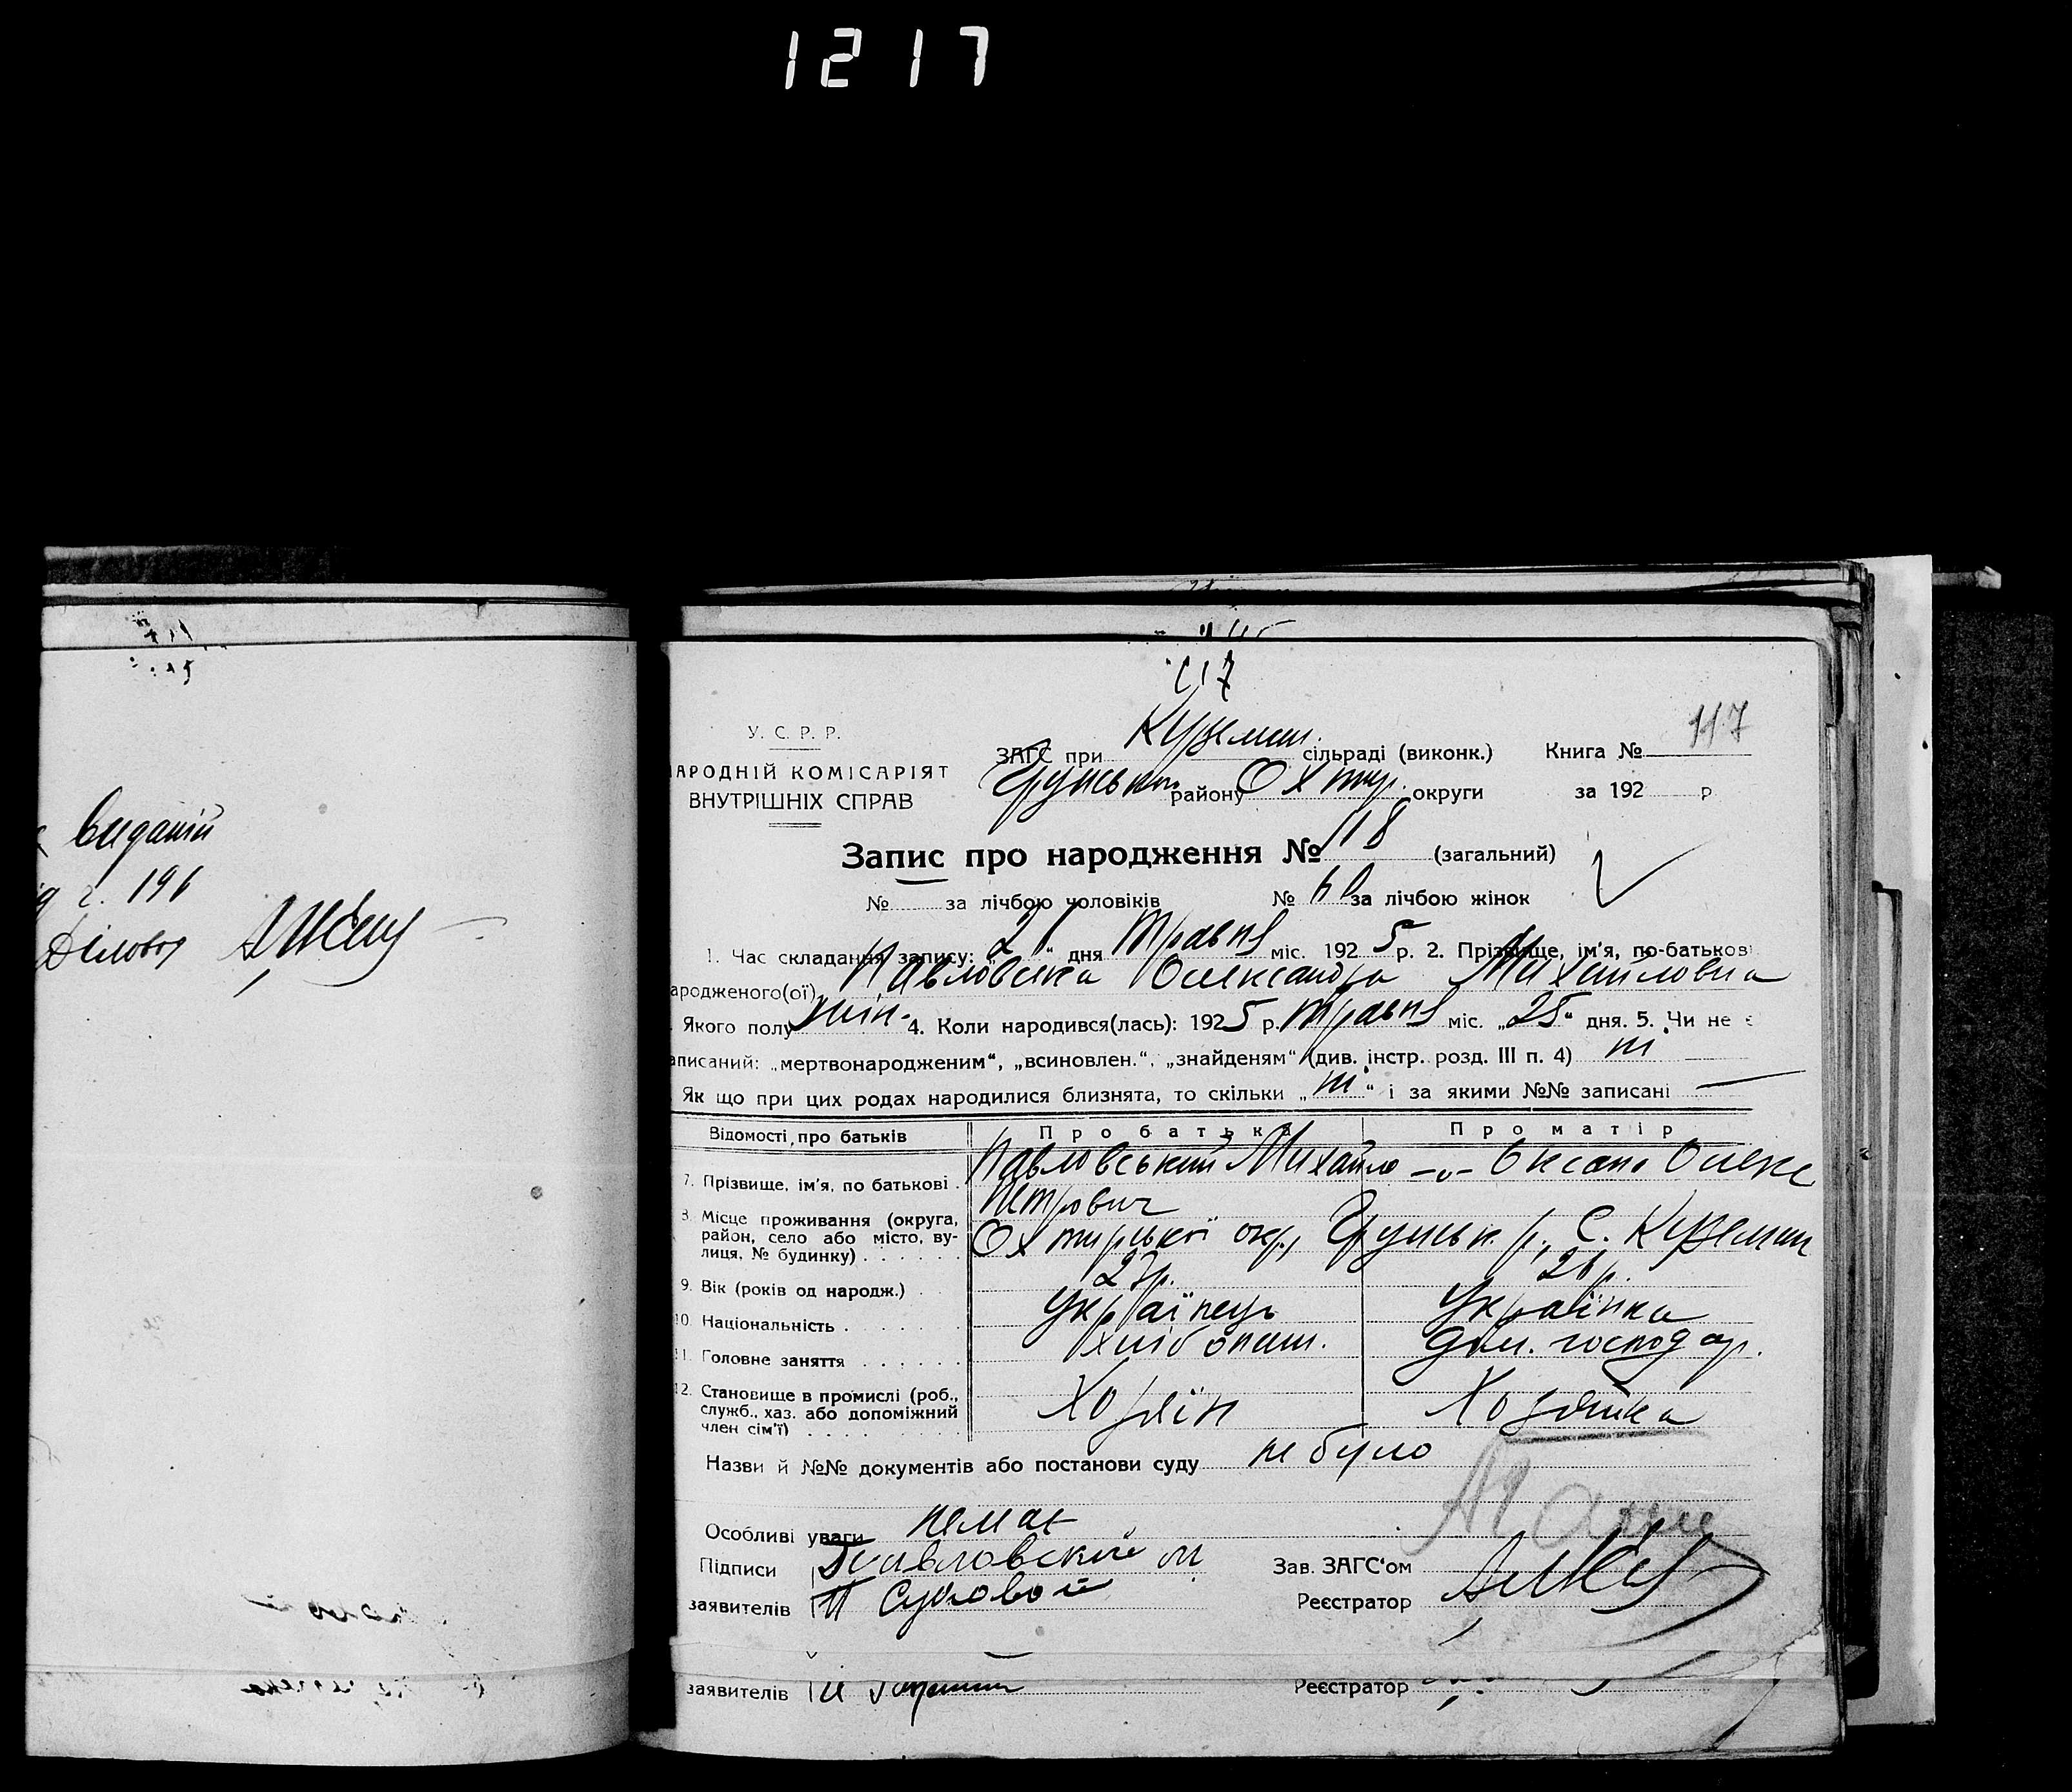 1217
видачій
г. 196
Ділово
117
У. С. Р. Р.
АРОДНІЙ КОМІСАРІЯТ
ВНУТРІШНІХ СПРАВ
ЗАГС при Куземин. сільраді (виконк.) Книга № 117
Грунськ району Охтир. округи за 192 р
Запис про народження № 118 (загальний)
№ за лічбою чоловіків № за лічбою жінок
1. Час складання запису: „ “ дня травня міс. 1925 р. 2. Прізвище, ім'я, по-батькові
ародженого(ої) Павловська Олександра Михайловна
Якого полу жін. 4. Коли народився(лась): 1925 р. травня міс. „25“ дня. 5. Чи не є
аписаний: „мертвонародженим“, „всиновлен.“, „знайденям“ (див. інстр. розд. III п. 4) ні
Як що при цих родах народилися близнята, то скільки „ні“ і за якими №№ записані —
Відомості про батьків Про батька Про матір
7. Прізвище, ім'я, по батькові . Павловський Михайло -„- Оксана Олекс
Петрович
8. Місце проживання (округа,
район, село або місто, ву-
лиця, № будинку) . . . . . Охтирської окр., Грунськ. р., С. Куземин
9. Вік (років од народж.) . 27р. 26р.
10. Національність . . . . . . Українець Українка
11. Головне заняття . . . . . . хлібопаш. дом. господар.
12. Становище в промислі (роб.,
служб., хаз. або допоміжний
член сім'ї) . . . . Хозяїн Хозяйка
Назви й №№ документів або постанови суду не було
Особливі уваги немає
Підписи Павловский М Зав. ЗАГС'ом
заявителів П Судовой Реєстратор
заявителів Реєстратор